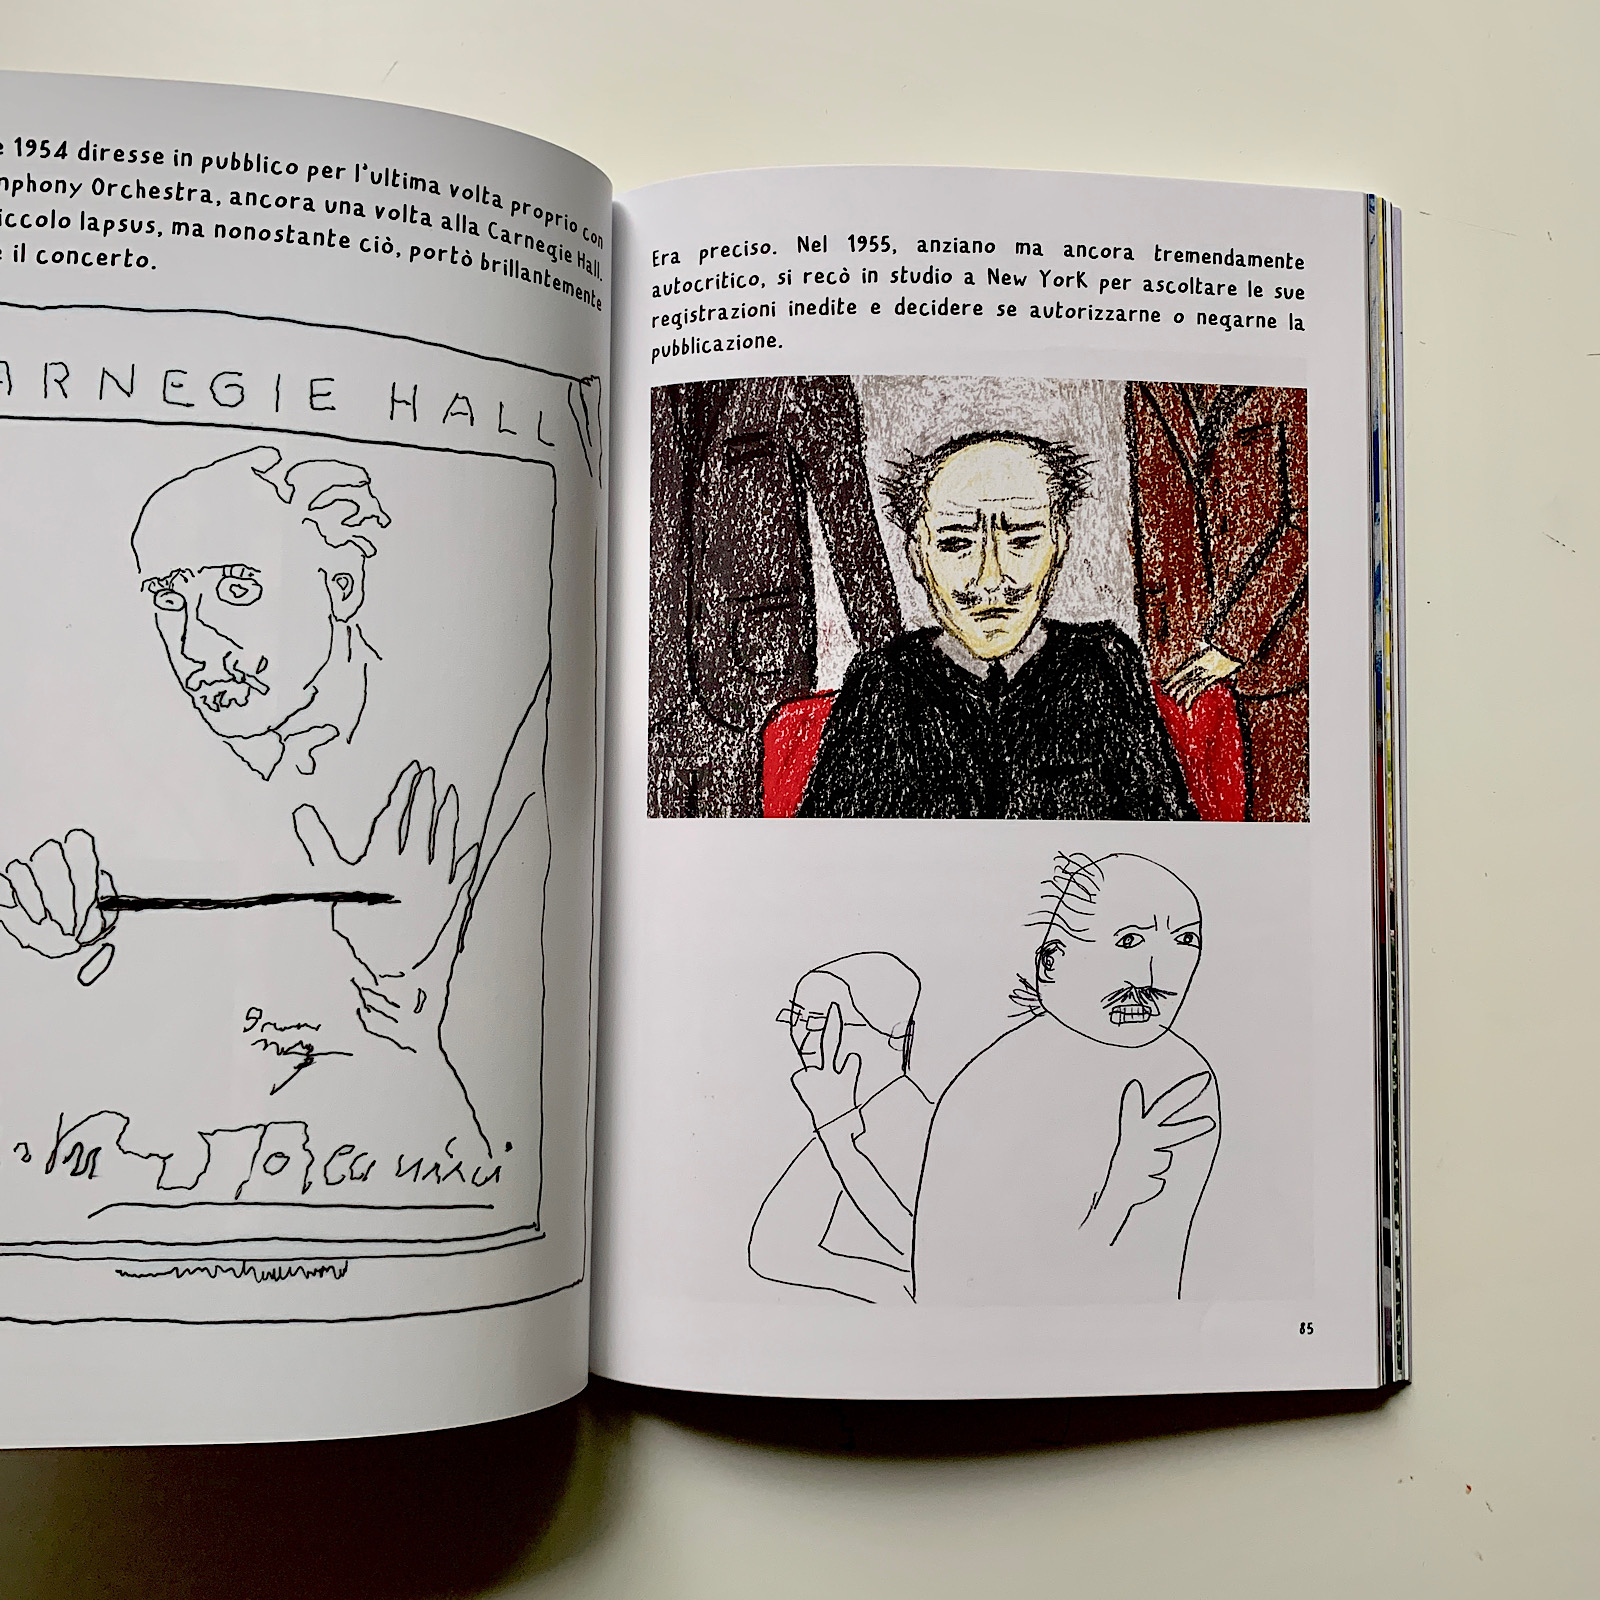 e 1954 diresse in pubblico per l'ultima volta proprio con
mphony Orchestra, ancora una volta alla Carnegie Hall.
iccolo lapsus, ma nonostante ciò, portò brillantemente
e il concerto.
ARNEGIE HALL
Era preciso. Nel 1955, anziano ma ancora tremendamente
autocritico, si recò in studio a New York per ascoltare le sue
registrazioni inedite e decidere se autorizzarne o negarne la
pubblicazione.
85